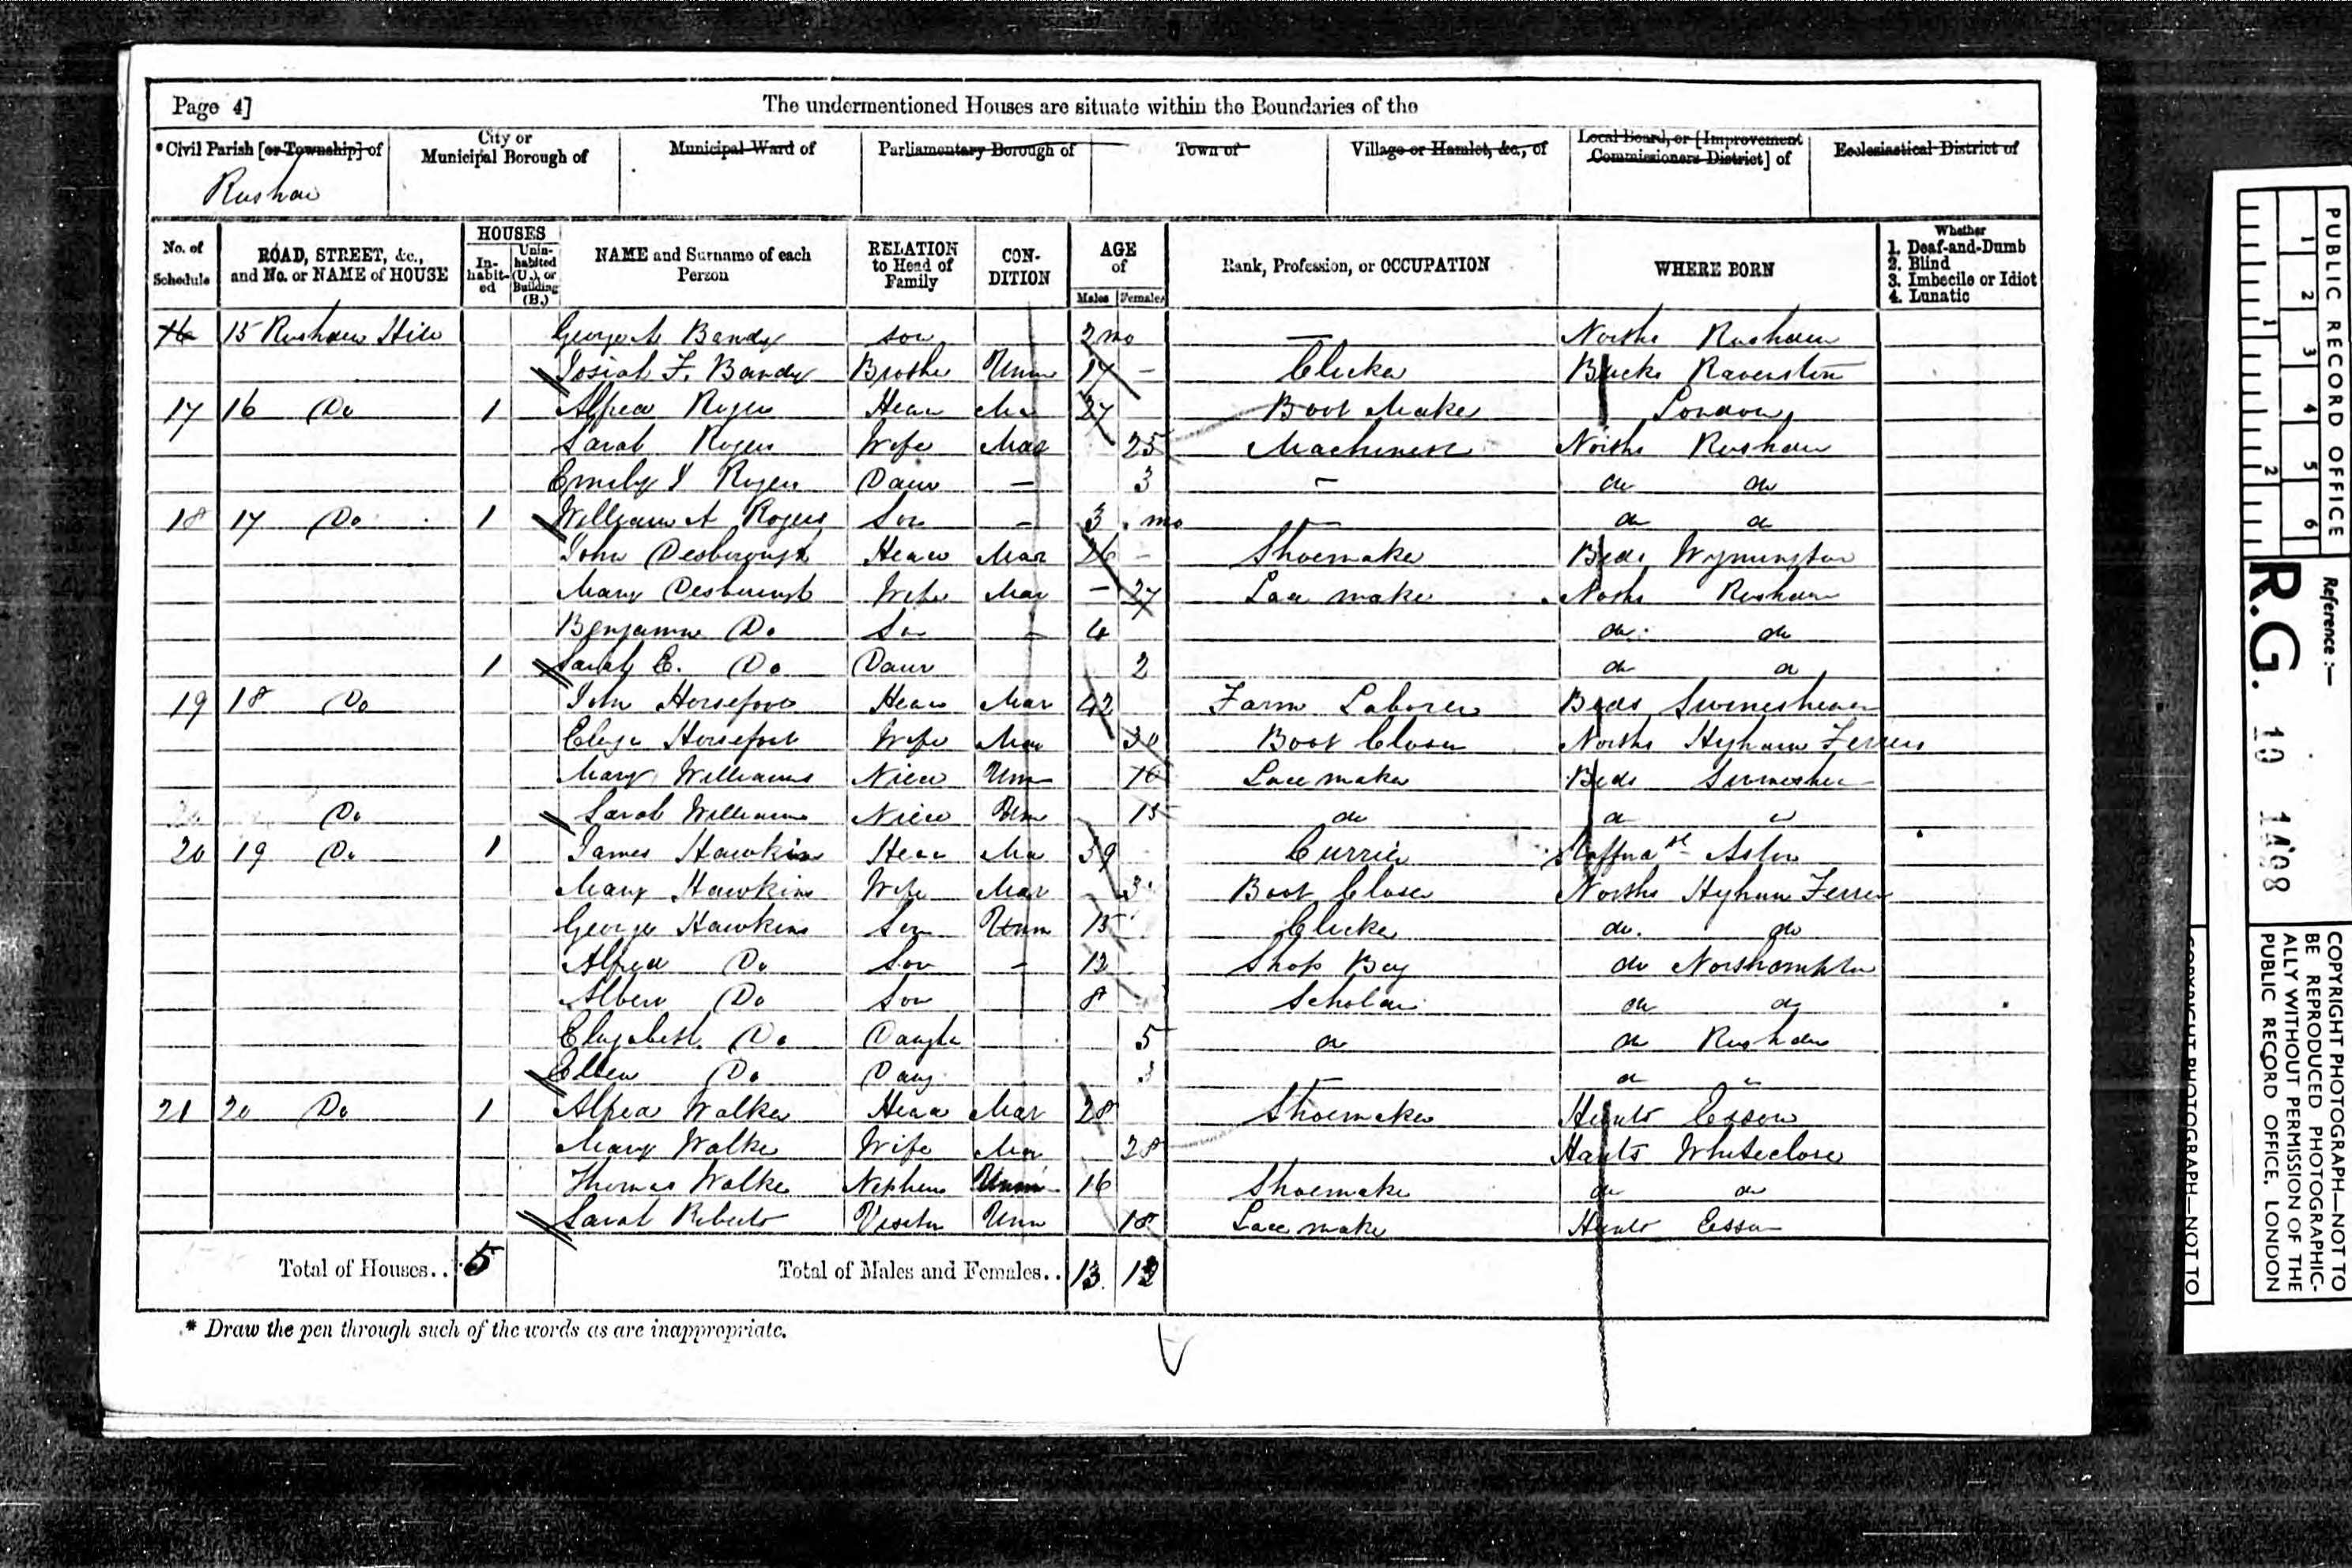 Page 4]
The undermentioned Houses are situate within the Boundaries of the
*Civil Parish [or Township] of
City or Municipal Borough of
Municipal Ward of
Parliamentary Borough of
Town of
Village or Hamlet, &c., of
Local Board, or [Improvement Commissioners District] of
Ecclesiastical District of
No. of Schedule
ROAD, STREET, &c., and No. or NAME of HOUSE
HOUSES
In-habit-ed
Unin-habited (U.), or Building (B.)
NAME and Surname of each Person
RELATION to Head of Family
CON-DITION
AGE of
Males
Females
Rank, Profession, or OCCUPATION
WHERE BORN
Whether
1. Deaf-and-Dumb
2. Blind
3. Imbecile or Idiot
4. Lunatic
15 Rushden Hill Bandy son 2 mo Rushden
Josiah F. Bandy Brother Unm 17 – Clicker Bucks
17 16 Do 1 Alfred Rogers Head Mar 27 Boot Maker London
Sarah Rogers Wife Mar 25 Machinest Norths Rushden
Emily Rogers Daur – 3 – do do
18 17 Do 1 William A Rogers Son – 3 mo – do do
John Desborough Head Mar – Shoemaker Beds Wymington
Mary Desborough Wife Mar – 27 Lace maker Norths Rushden
Benjamin Do Son – do do
1 Sarah E. Do Daur 2 do do
19 18 Do John Head Mar 42 Farm Laborer Beds
Eliza Wife Mar 30 Boot Closer Norths Hyham Ferrers
Mary Williams Niece Unm 16 Lace maker Beds
Do Sarah Williams Niece Unm 15 do do
20 19 Do 1 James Hawkins Head Mar 39 Currier
Mary Hawkins Wife Mar Boot Closer Norths Hyham Ferrers
George Hawkins Son Unm 15 Clicker do do
Alfred Do Son – 12 Shop Boy do Northampton
Albert Do Son 8 Scholar do do
Elizabeth Do Daughter 5 do do Rushden
Ellen Do Daug 3 – do
21 20 Do 1 Alfred Walker Head Mar 28 Shoemaker Hunts
Mary Walker Wife Mar 28 Hants
Thomas Walker Nephew Unm 16 Shoemaker do do
Sarah Roberts Visitor Unm 18 Lace maker Hunts
Total of Houses.. 5
Total of Males and Females.. 13 12
* Draw the pen through such of the words as are inappropriate.
PUBLIC RECORD OFFICE
1 2 3 4 5 6
1 2
Reference :—
R.G. 10
COPYRIGHT PHOTOGRAPH—NOT TO
BE REPRODUCED PHOTOGRAPHIC-
ALLY WITHOUT PERMISSION OF THE
PUBLIC RECORD OFFICE, LONDON
COPYRIGHT PHOTOGRAPH—NOT TO